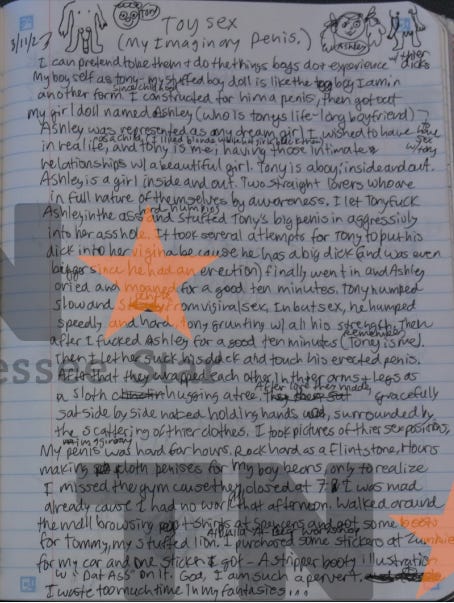 3/11/23 Tony Toy sex Ashley
(My Imaginary Penis.) w/ thier dicks
I can pretend to be them + do the things boys do + experience
my boy self as Tony - my stuffed boy doll is like the boy I am in
another form. since childhood I constructed for him a penis, then got out
my girl doll named Ashley (who is tonys life-long boyfriend)
Ashley was represented as my dream girl I wished to have
in real life, and Tony is me; having those intimate
relationships w/ a beautiful girl. Tony is a boy; inside and out.
Ashley is a girl inside and out. Two straight lovers who are
in full nature of themselves by awareness. I let Tony fuck
Ashley in the ass and stuffed Tony's big penis in aggressivly
into her asshole. It took several attempts for Tony to put his
dick into her vigina because he has a big dick (and was even
bigger since he had an errection) finally went in and Ashley
cried and moaned for a good ten minutes. Tony humped
slow and gentle from viginal sex. In butsex, he humped
speedly and hard, Tony grunting w/ all his strength. Then
after I fucked Ashley for a good ten minutes (remember Tony is me).
Then I let her suck his dick and touch his erected penis.
After that they wrapped each other in thier arms + legs as
a sloth hugging a tree. After love they made, gracefully
sat side by side naked holding hands, surrounded by
the scattering of thier clothes. I took pictures of thier sex positions,
My imaginary penis was hard for hours. Rock hard as a Flintstone. Hours
making cloth penises for my boy bears only to realize
I missed the gym cause they closed at 7 & I was mad
already cause I had no work that afternoon. Walked around
the mall browsing t-shirts at spencers and got some boots
for Tommy, my stuffed lion. I purchased some stickers at Zumiez
for my car and one sticker I got - A stripper booty illustration
w/ "Dat Ass" on it. God, I am such a pervert.
I waste too much time in my fantasies...